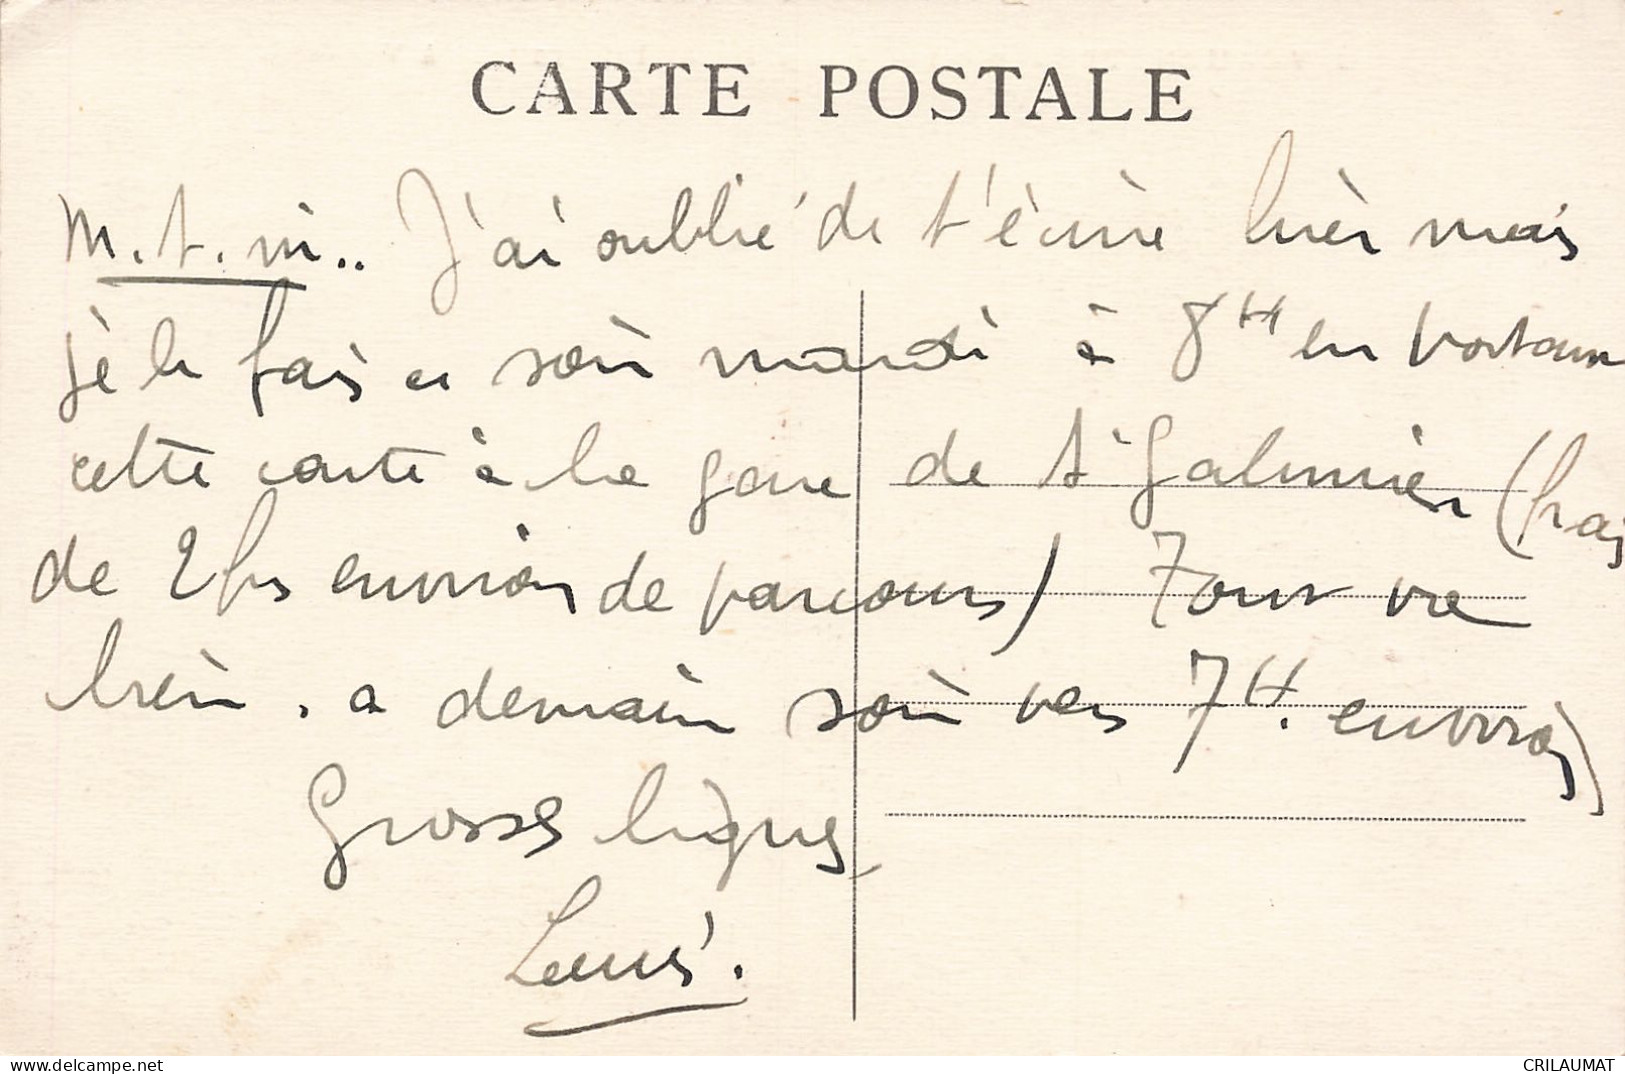 CARTE POSTALE
m.t.m.. J'ai oublié de t'écrire hier mais
je le fais ce soir mardi à 8H en portant
cette carte à la gare de St Galmier (trajet
de 2 hrs environ de parcours) Tout va
bien. a demain soir vers 7H. environ
Grosses
Louis.
www.delcampe.net
CRILAUMAT